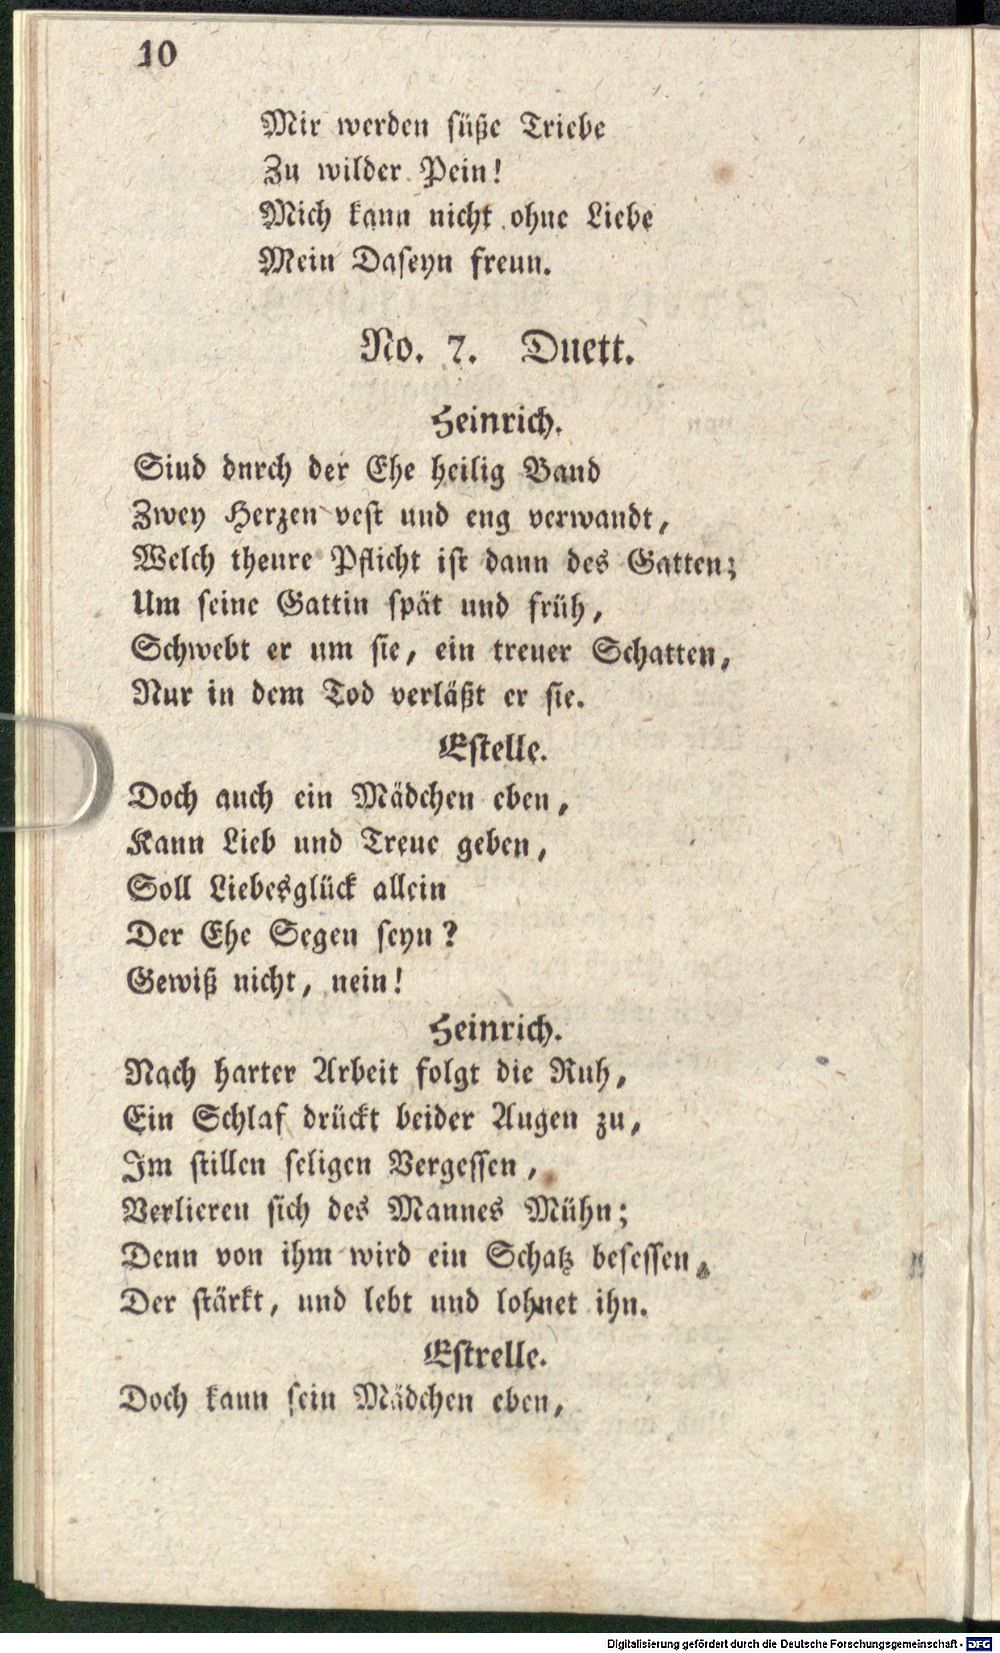 10
Mir werden süße Triebe
Zu wilder Pein!
Mich kann nicht ohne Liebe
Mein Daseyn freun.
No. 7. Duett.
Heinrich.
Sind durch der Ehe heilig Band
Zwey Herzen vest und eng verwandt,
Welch theure Pflicht ist dann des Gatten;
Um seine Gattin spät und früh,
Schwebt er um sie, ein treuer Schatten,
Nur in dem Tod verläßt er sie.
Estelle.
Doch auch ein Mädchen eben,
Kann Lieb und Treue geben,
Soll Liebesglück allein
Der Ehe Segen seyn?
Gewiß nicht, nein!
Heinrich.
Nach harter Arbeit folgt die Ruh,
Ein Schlaf drückt beider Augen zu,
Im stillen seligen Vergessen,
Verlieren sich des Mannes Mühn;
Denn von ihm wird ein Schatz besessen,
Der stärkt, und lebt und lohnet ihn.
Estrelle.
Doch kann sein Mädchen eben,
Digitalisierung gefördert durch die Deutsche Forschungsgemeinschaft - DFG